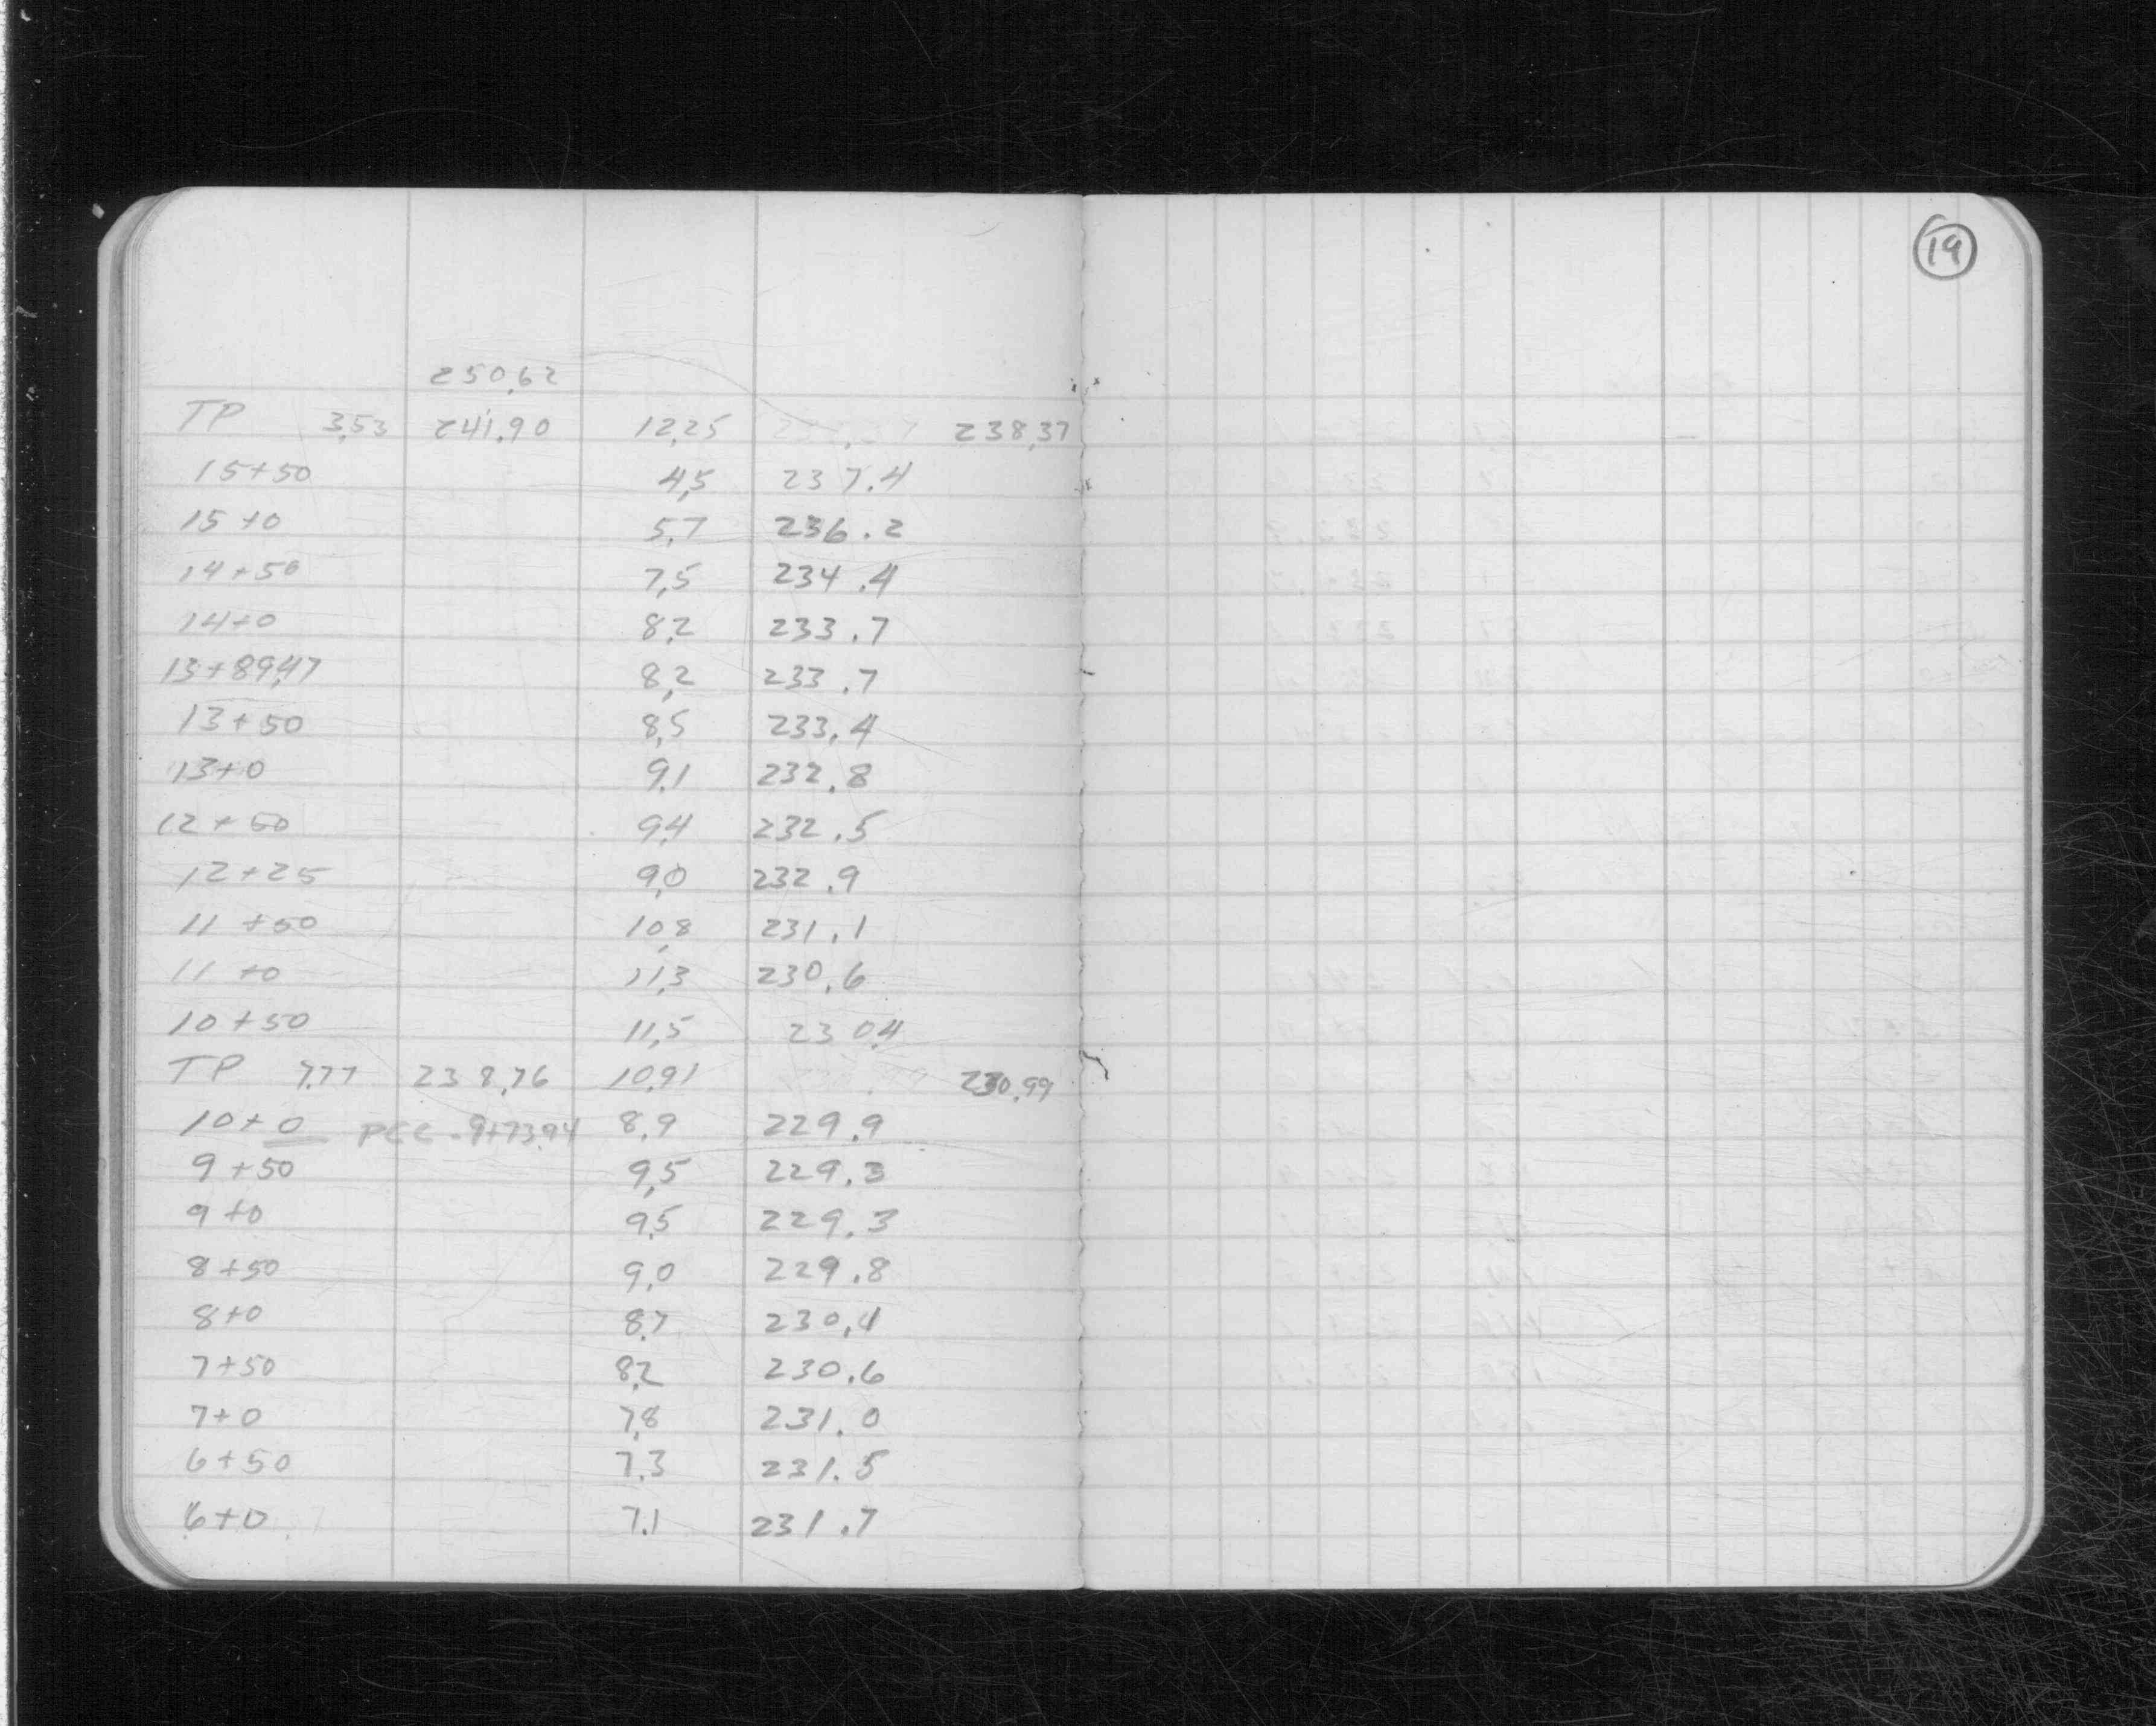 19
250.62
TP 3.53 241.90 12.25 238.37
15+50 4.5 237.4
15+0 5.7 236.2
14+50 7.5 234.4
14+0 8.2 233.7
13+89.47 8.2 233.7
13+50 8.5 233.4
13+0 9.1 232.8
12+50 9.4 232.5
12+25 9.0 232.9
11+50 10.8 231.1
11+0 11.3 230.6
10+50 11.5 230.4
TP 7.77 238.76 10.91 230.99
10+0 PCC-9+73.94 8.9 229.9
9+50 9.5 229.3
9+0 9.5 229.3
8+50 9.0 229.8
8+0 8.7 230.4
7+50 8.2 230.6
7+0 7.8 231.0
6+50 7.3 231.5
6+0 7.1 231.7